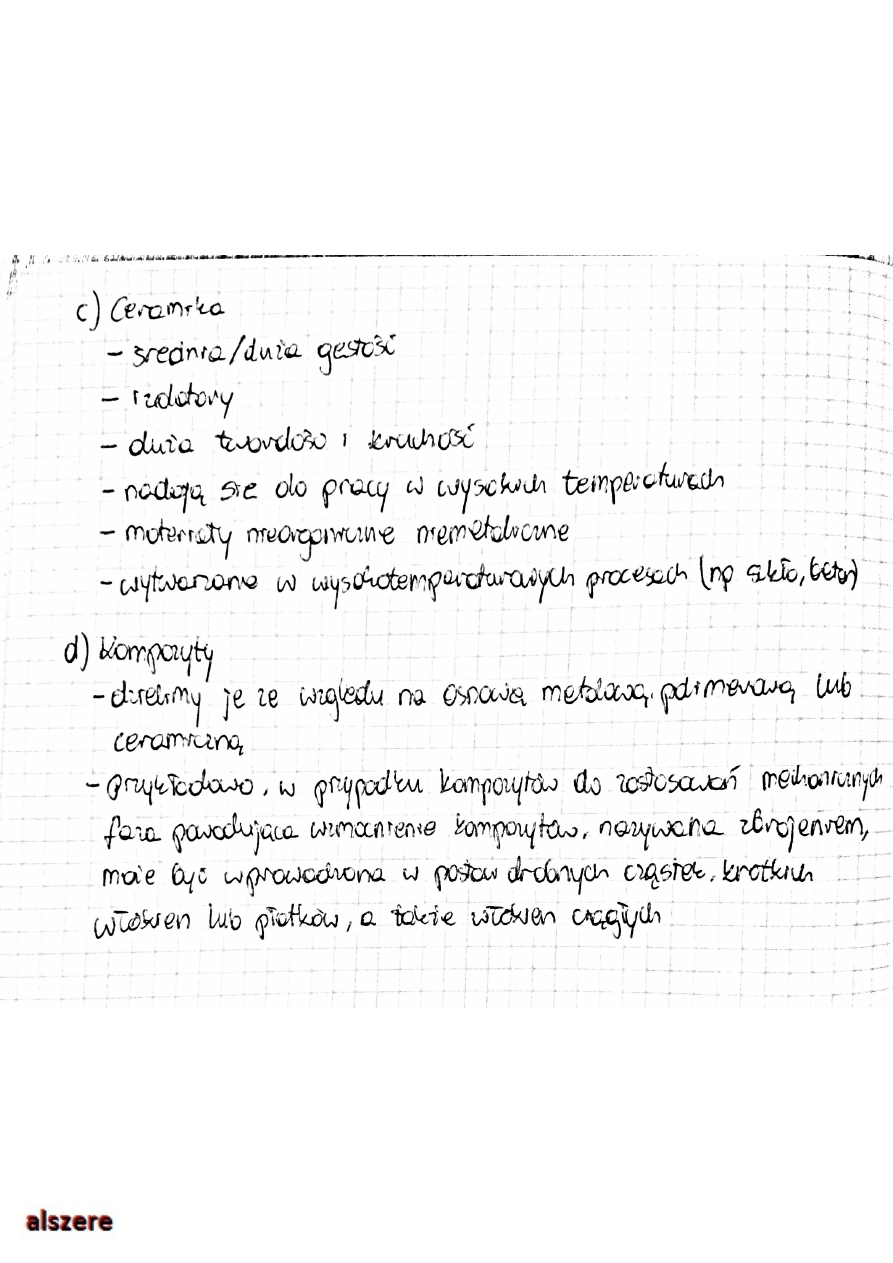 c) Ceramika
- średnia/duża gęstość
- izolatory
- duża twardość i kruchość
- nadają się do pracy w wysokich temperaturach
- materiały nieorganiczne niemetaliczne
- wytwarzane w wysokotemperaturowych procesach (np szkło, beton)
d) Kompozyty
- dzielimy je ze względu na osnowę metalową, polimerową lub
ceramiczną
- przykładowo, w przypadku kompozytów do zastosowań mechanicznych
faza powodująca wzmocnienie kompozytów, nazywana zbrojeniem,
może być wprowadzona w postaci drobnych cząstek, krótkich
włókien lub płatków, a także włókien ciągłych
alszere